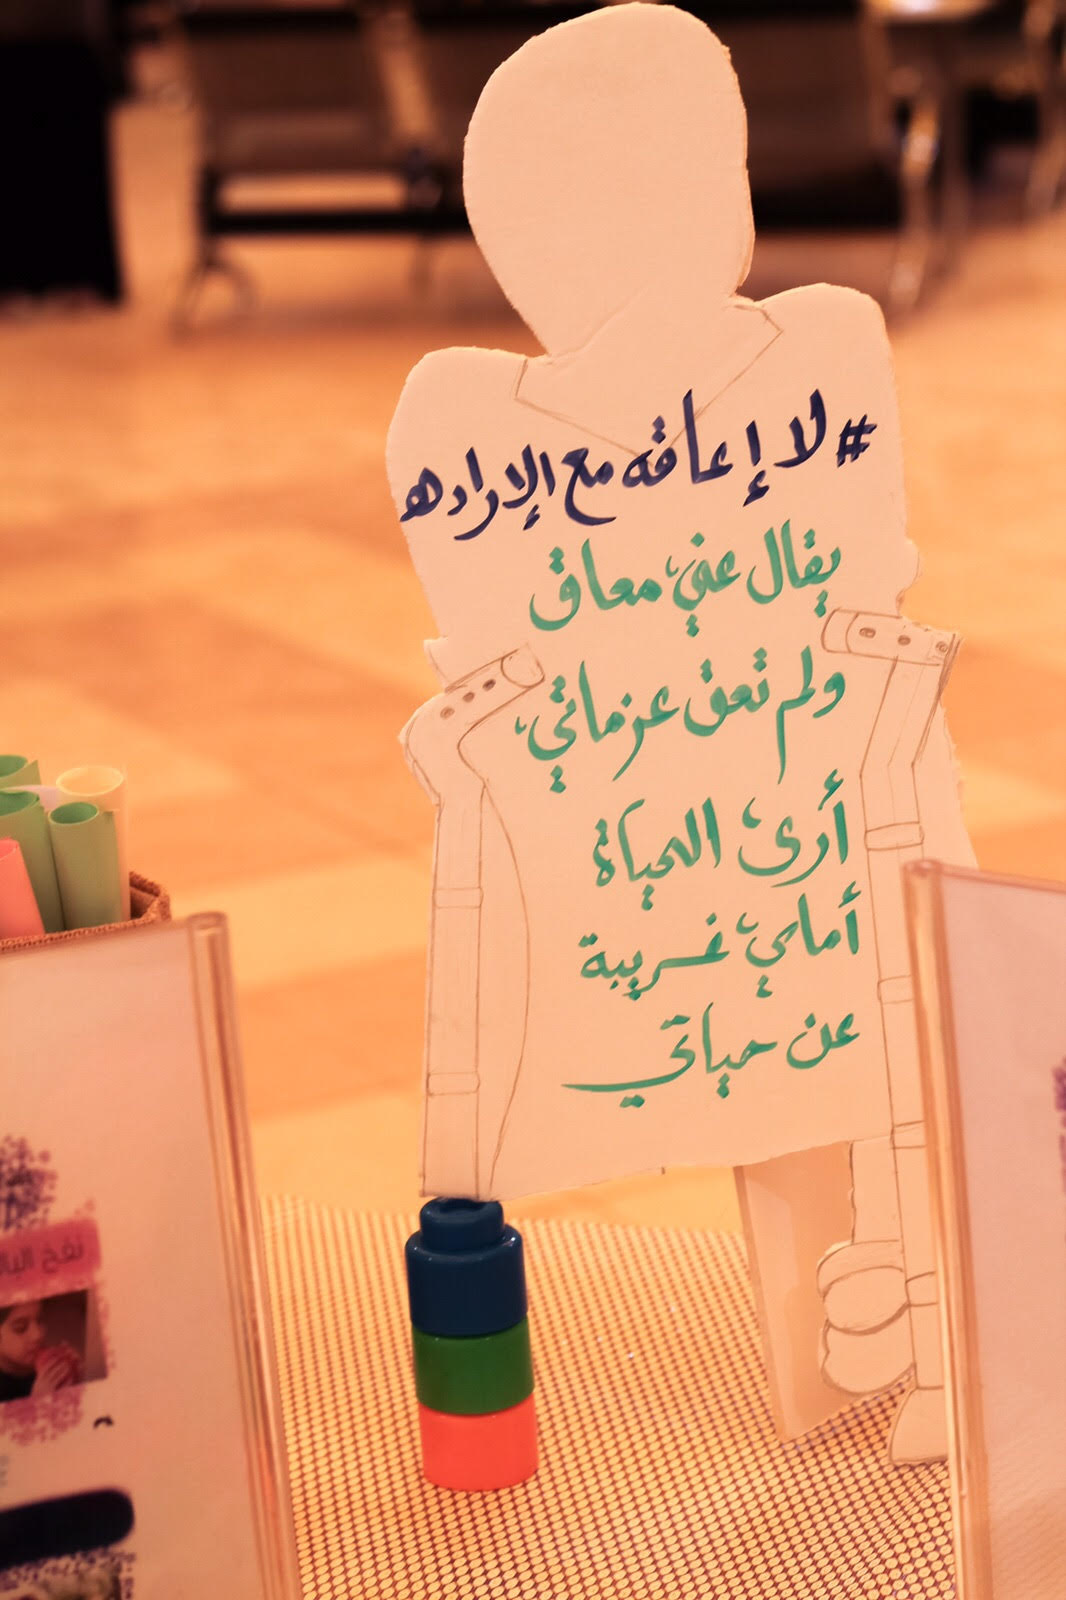 #لا إعاقه مع الإراده
يقال عني معاق
ولم تعق عزماتي
أرى الحياة
أمامي غريبة
عن حياتي
نفخ البال